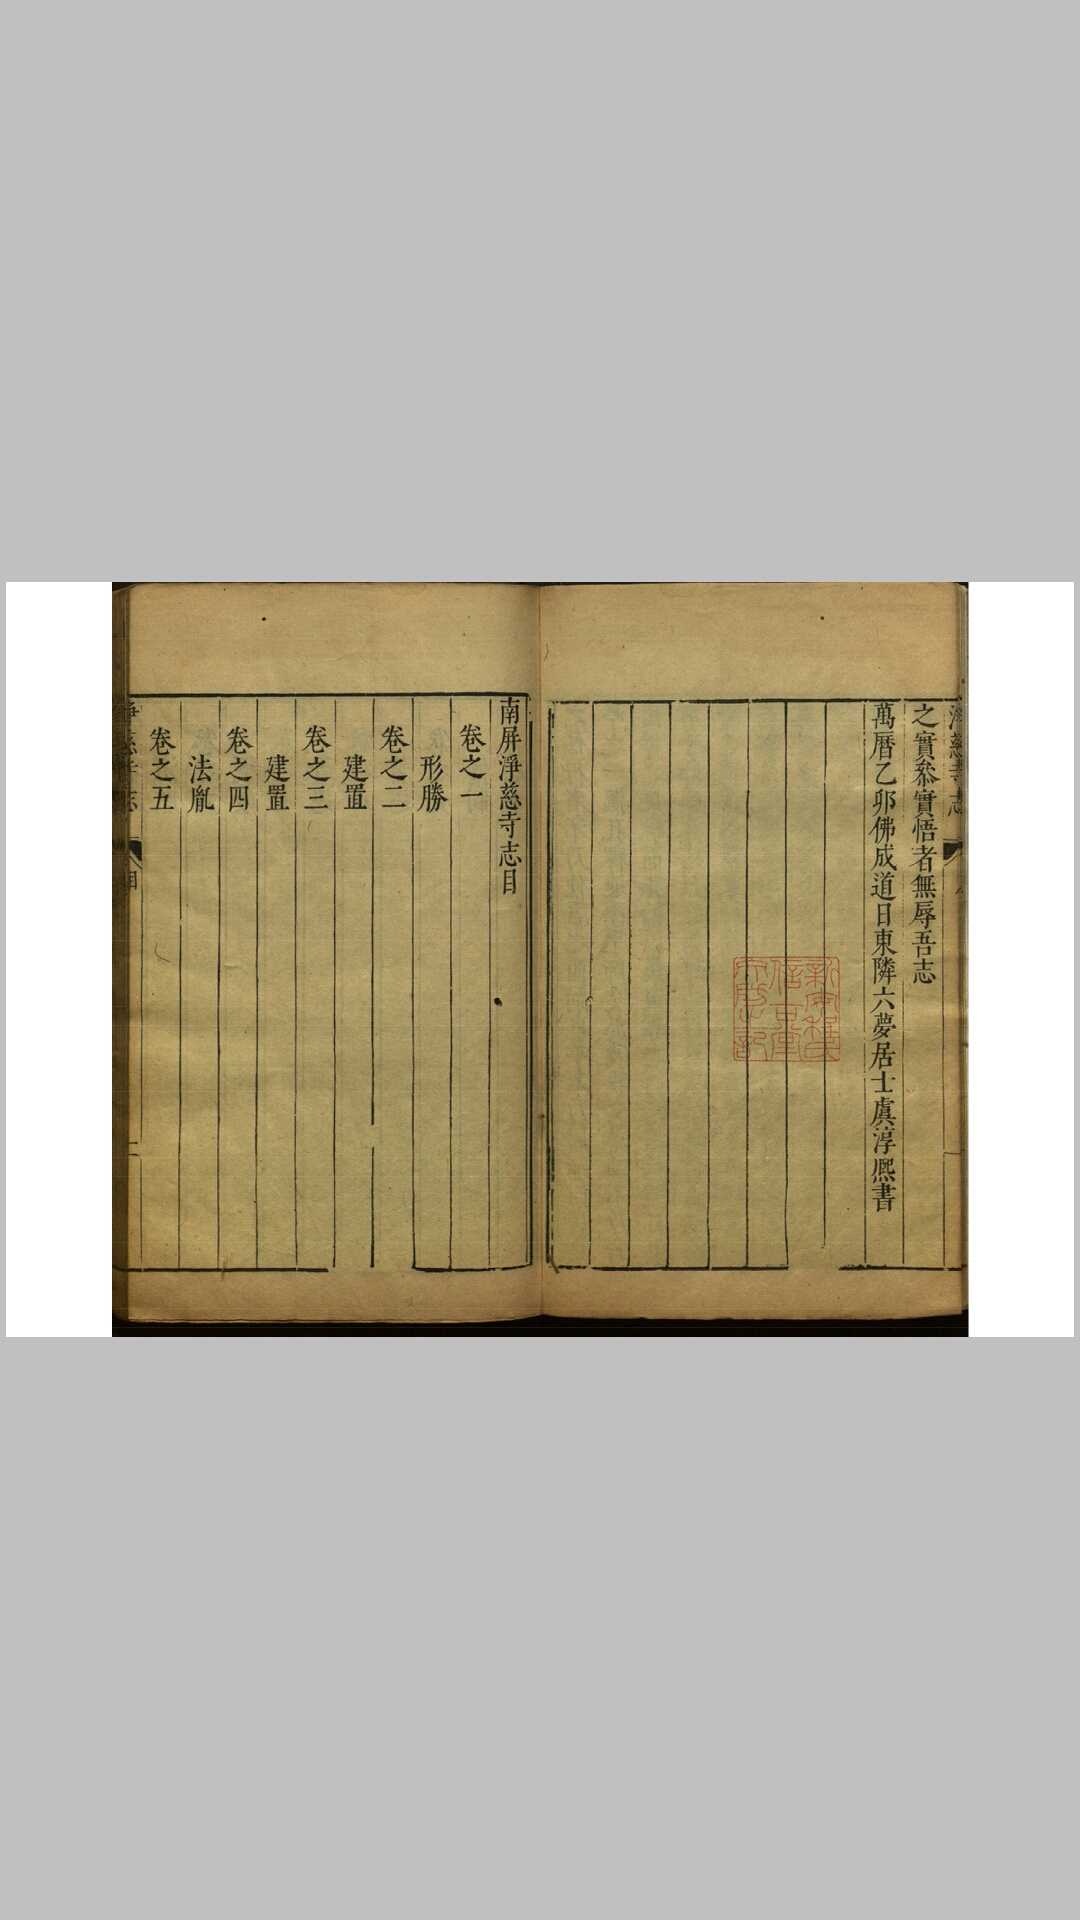 淨慈寺志
之實叅實悟者無辱吾志
萬曆乙卯佛成道日東隣六夢居士虞淳熈書
南屏淨慈寺志目
卷之一
形勝
卷之二
建置
卷之三
建置
卷之四
法胤
卷之五
淨慈寺志
目
一